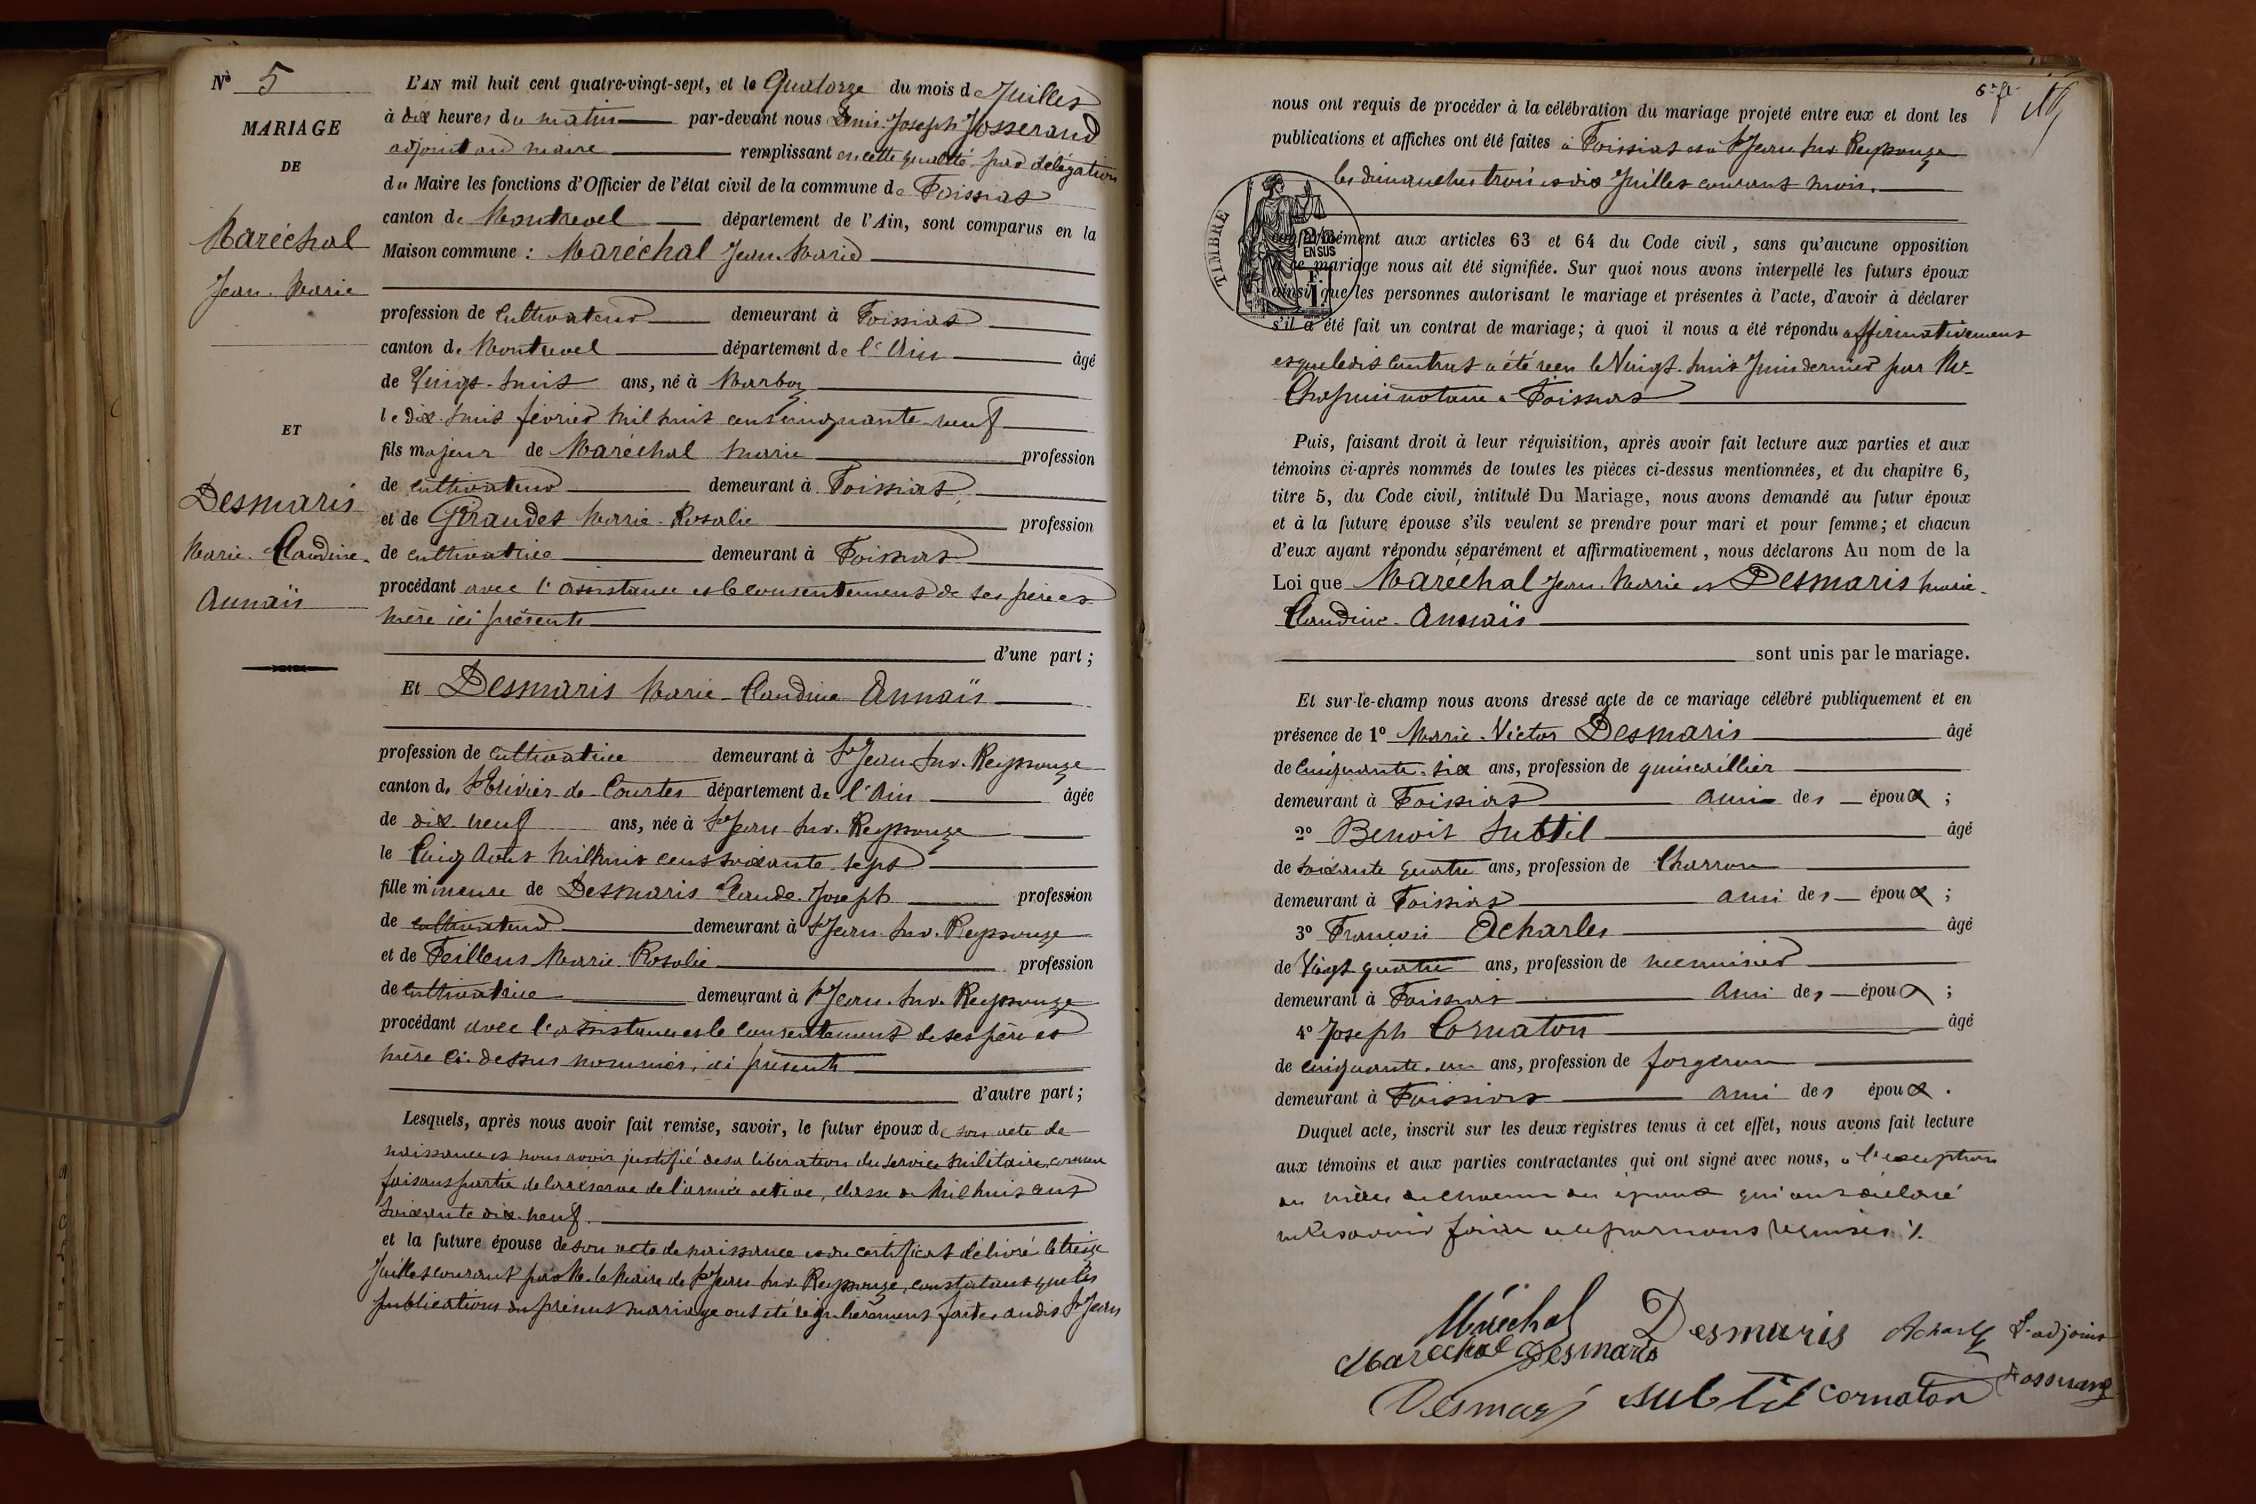 N° 5
MARIAGE
DE
Maréchal
Jean-Marie
ET
Desmaris
Marie-Claudine-
Annaïs
L'AN mil huit cent quatre-vingt-sept, et le Quatorze du mois de Juillet
à dix heures du matin par-devant nous Denis-Joseph Josserand
adjoint au maire remplissant en cette qualité par délégation
du Maire les fonctions d'Officier de l'état civil de la commune de Foissiat
canton de Montrevel département de l'Ain, sont comparus en la
Maison commune : Maréchal Jean-Marie
profession de cultivateur demeurant à Foissiat
canton de Montrevel département de l'Ain âgé
de Vingt-huit ans, né à Marboz
le dix-huit février mil huit cent cinquante-neuf
fils majeur de Maréchal Marie profession
de cultivateur demeurant à Foissiat
et de Girandet Marie-Rosalie profession
de cultivatrice demeurant à Foissiat
procédant avec l'assistance et le consentement de ses père et
mère ici présents
d'une part ;
Et Desmaris Marie-Claudine Annaïs
profession de cultivatrice demeurant à St Jean-sur-Reyssouze
canton de St Trivier-de-Courtes département de l'Ain âgée
de dix-neuf ans, née à St Jean-sur-Reyssouze
le Cinq Août mil huit cent soixante-sept
fille mineure de Desmaris Claude-Joseph profession
de cultivateur demeurant à St Jean-sur-Reyssouze
et de Feillens Marie-Rosalie profession
de cultivatrice demeurant à St Jean-sur-Reyssouze
procédant avec l'assistance et le consentement de ses père et
mère ci-dessus nommés, ici présents
d'autre part ;
Lesquels, après nous avoir fait remise, savoir, le futur époux de son acte de
naissance et nous avoir justifié de sa libération du service militaire comme
faisant partie de la réserve de l'armée active, classe de mil huit cent
soixante dix-neuf.
et la future épouse de son acte de naissance et du certificat délivré le treize
Juillet courant par M. le Maire de St Jean-sur-Reyssouze, constatant que les
publications du présent mariage ont été régulièrement faites audit St Jean
6e ft
nous ont requis de procéder à la célébration du mariage projeté entre eux et dont les
publications et affiches ont été faites à Foissiat et à St Jean-sur-Reyssouze
les dimanches trois et dix Juillet courant mois.
TIMBRE
2/10
EN SUS
F
1
conformément aux articles 63 et 64 du Code civil, sans qu'aucune opposition
à ce mariage nous ait été signifiée. Sur quoi nous avons interpellé les futurs époux
ainsi que les personnes autorisant le mariage et présentes à l'acte, d'avoir à déclarer
s'il a été fait un contrat de mariage ; à quoi il nous a été répondu affirmativement
et que ledit contrat a été reçu le Vingt-huit Juin dernier par Me
Chapuis notaire à Foissiat
Puis, faisant droit à leur réquisition, après avoir fait lecture aux parties et aux
témoins ci-après nommés de toutes les pièces ci-dessus mentionnées, et du chapitre 6,
titre 5, du Code civil, intitulé Du Mariage, nous avons demandé au futur époux
et à la future épouse s'ils veulent se prendre pour mari et pour femme ; et chacun
d'eux ayant répondu séparément et affirmativement, nous déclarons Au nom de la
Loi que Maréchal Jean-Marie et Desmaris Marie-
Claudine-Annaïs
sont unis par le mariage.
Et sur-le-champ nous avons dressé acte de ce mariage célébré publiquement et en
présence de 1° Marie-Victor Desmaris âgé
de cinquante-six ans, profession de quincaillier
demeurant à Foissiat ami des époux ;
2° Benoit Subtil âgé
de soixante quatre ans, profession de Charron
demeurant à Foissiat ami des époux ;
3° François Acharles âgé
de Vingt quatre ans, profession de menuisier
demeurant à Foissiat ami des époux ;
4° Joseph Cornaton âgé
de cinquante-un ans, profession de forgeron
demeurant à Foissiat ami des époux.
Duquel acte, inscrit sur les deux registres tenus à cet effet, nous avons fait lecture
aux témoins et aux parties contractantes qui ont signé avec nous, à l'exception
des mères de chacun des époux qui ont déclaré
ne le savoir faire de ce par nous requises ./.
Maréchal
Maréchal Desmaris
Desmaris
L'adjoint
Desmaris
Subtil
Cornaton
Josserand